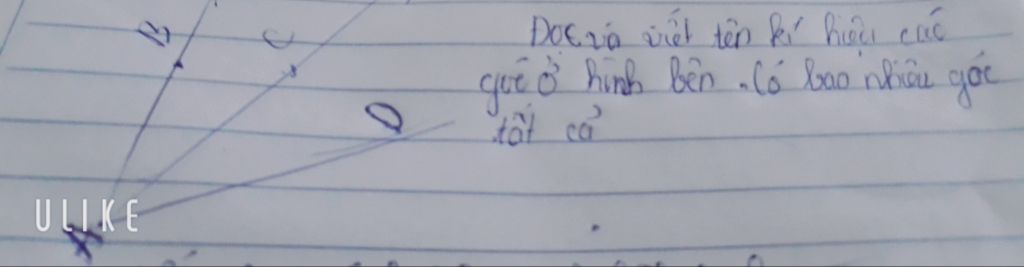 B
C
Đọc và viết tên kí hiệu các
góc ở hình bên. Có bao nhiêu góc
D
tất cả
ULIKE
A